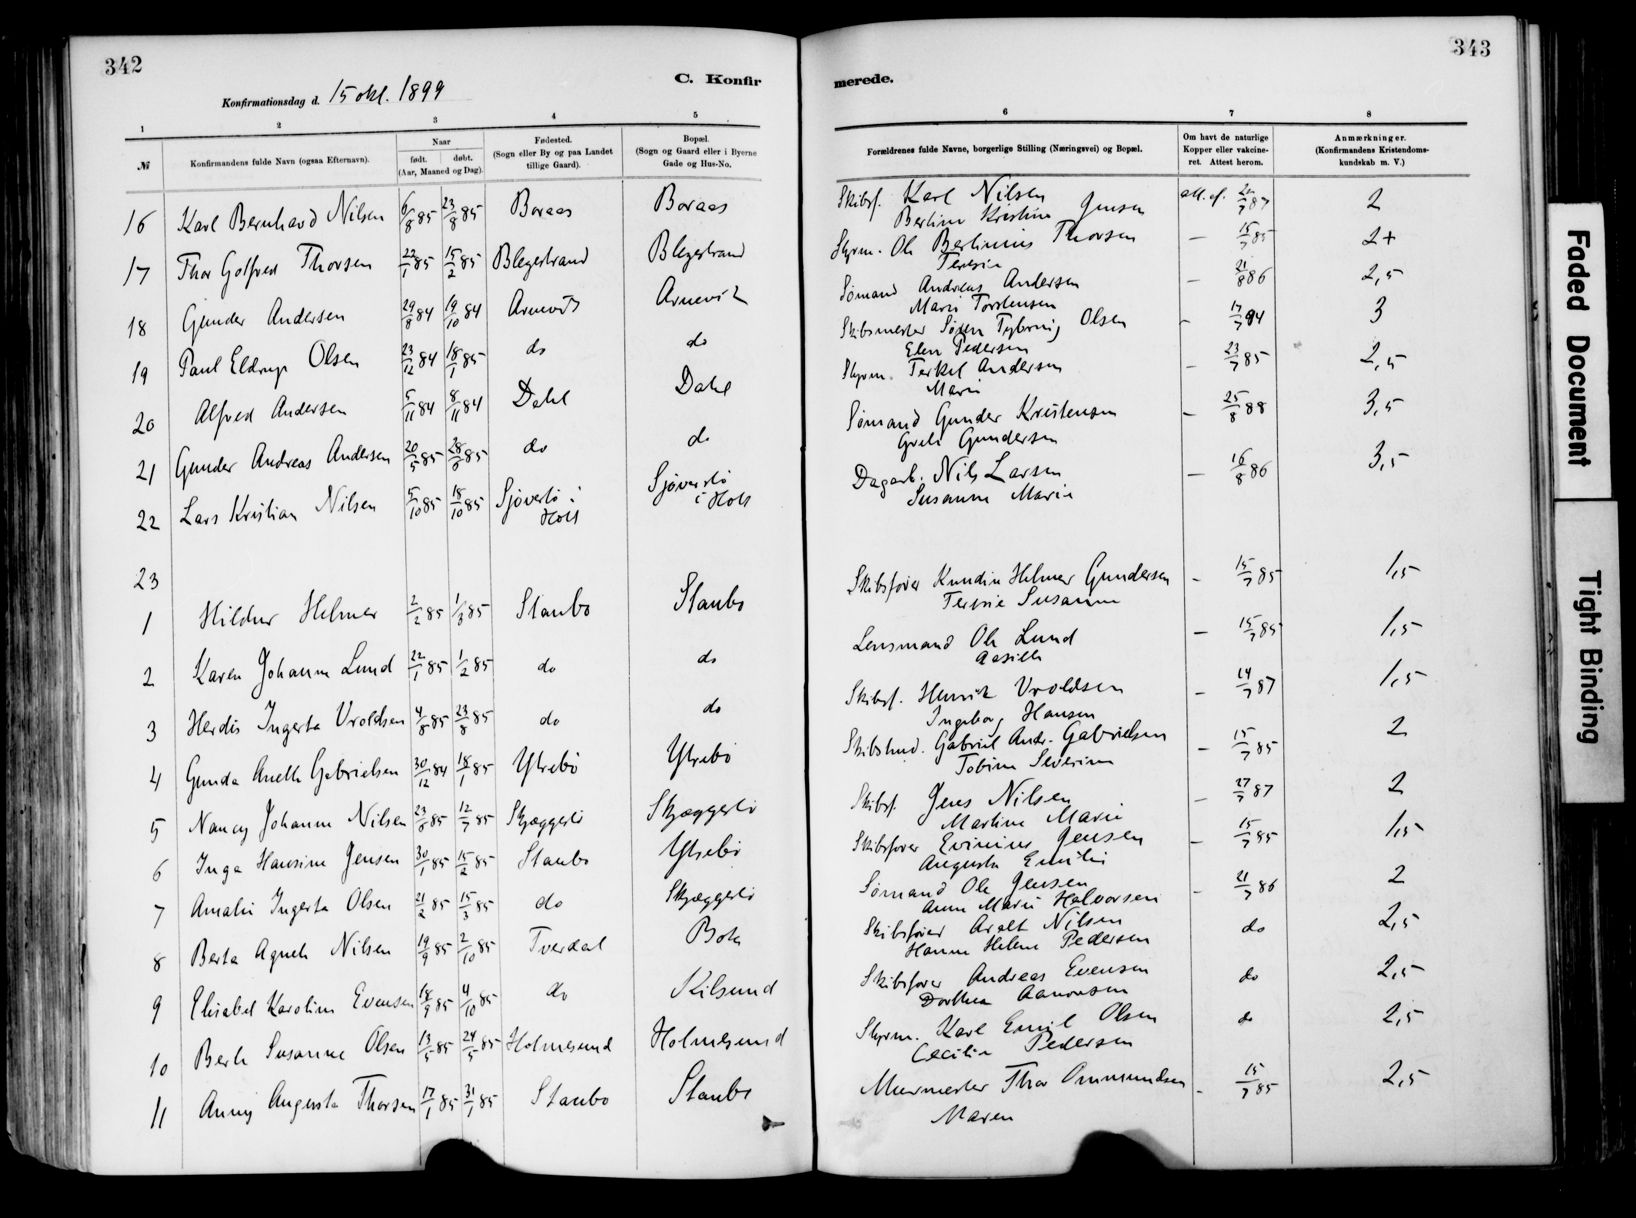 342
C. Konfir
Konfirmationsdag d. 15 okt. 1899
1 2 3 4 5
№
Konfirmandens fulde Navn (ogsaa Efternavn).
Naar
født. døbt.
(Aar, Maaned og Dag).
Fødested.
(Sogn eller By og paa Landet
tillige Gaard).
Bopæl.
(Sogn og Gaard eller i Byerne
Gade og Hus-No.
16 Karl Bernhard Nilsen 6/8 85 23/8 85 Boraas Boraas
17 Thor Golfred Thorsen 22/1 85 15/2 85 Blegestrand Blegestrand
18 Gunder Andersen 29/8 84 19/10 84 Arnevik Arnevik
19 Paul Eldrup Olsen 23/12 84 18/1 85 do do
20 Alfred Andersen 5/11 84 8/11 84 Dahl Dahl
21 Gunder Andreas Andersen 20/5 85 28/6 85 do do
22 Lars Kristian Nilsen 5/10 85 18/10 85 Sjøverstø i Sjøverstø
Holt i Holt
23
1 Hildur Helmer 2/2 85 1/3 85 Staubo Staubo
2 Karen Johanne Lund 22/1 85 1/2 85 do do
3 Herdis Ingerta Vroldsen 4/8 85 23/8 85 do do
4 Gunda Anette Gabrielsen 30/12 84 18/1 85 Ytrebø Ytrebø
5 Nancy Johanne Nilsen 23/6 85 12/7 85 Skjæggestø Skjæggestø
6 Inga Hansine Jensen 30/1 85 15/2 85 Staubo Ytrebø
7 Amalie Ingerta Olsen 21/2 85 15/3 85 do Skjæggestø
8 Berta Agnete Nilsen 19/9 85 2/10 85 Tverdal Bota
9 Elisabet Karoline Evensen 18/9 85 4/10 85 do Kilsund
10 Berte Susanne Olsen 13/5 85 24/5 85 Holmesund Holmesund
11 Anny Augusta Thorsen 17/1 85 31/1 85 Staubo Staubo
343
merede.
6 7 8
Forældrenes fulde Navne, borgerlige Stilling (Næringsvei) og Bopæl.
Om havt de naturlige
Kopper eller vakcine-
ret. Attest herom.
Anmærkninger.
(Konfirmandens Kristendoms-
kundskab m. V.)
Skibsf. Karl Nilsen att. af. 20/7 87 2
Bertine Kristine Jensen
Styrm. Ole Bertinius Thorsen — 15/7 85 2+
Teresia
Sømand Andreas Andersen — 21/8 86 2,5
Marie Torstensen
Skibsmester Søren Tybring Olsen — 17/7 94 3
Elen Pedersen
Styrm. Terkel Andersen — 23/7 85 2,5
Marie
Sømand Gunder Kristensen — 25/8 88 3,5
Grete Gundersen
Dagarb. Nils Larsen — 16/8 86 3,5
Susanne Marie
Skibsfører Knudin Helmer Gundersen — 15/7 85 1,5
Teresie Susanne
Lensmand Ole Lund — 15/7 85 1,5
Aasille
Skibsf. Henrik Vroldsen — 14/7 87 1,5
Ingeborg Hansen
Skibstmd. Gabriel Andr. Gabrielsen — 15/7 85 2
Tobine Severine
Skibsf. Jens Nilsen — 27/7 87 2
Martine Marie
Skibsfører Evinius Jensen — 15/7 85 1,5
Augusta Emilie
Sømand Ole Jensen — 21/7 86 2
Anne Marie Halvorsen
Skibsfører Aralt Nilsen do 2,5
Hanne Helene Pedersen
Skibsfører Andreas Evensen do 2,5
Dorthea Aanonsen
Styrm. Karl Emil Olsen do 2,5
Cecilie Pedersen
Murmester Thor Ommundsen - 15/7 85 2,5
Maren
Faded Document
Tight Binding